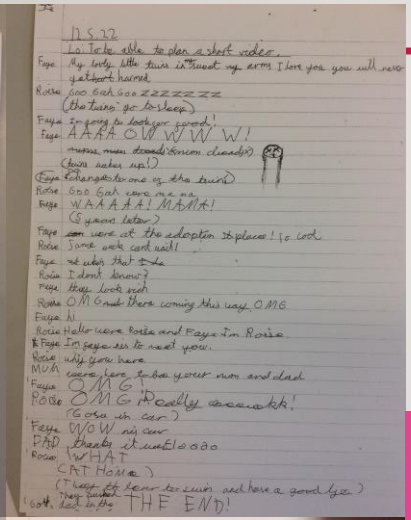 12.5.22
Lo: To be able to plan a short video.
Faye My lovly little twins in sweet my arms I love you you will never
get hurt harmed
Roise Goo Gah Goo ZZZZZZZ
(the twins go to sleep)
Faye Im going to look for good!
Faye AAAA OW W W W!
(twins wakes up!)
(Faye changes to one of the twins)
Roise Goo Gah were ma ma
Faye WAAAAA! MAMA!
(5 years later)
Faye were at the adoption st place! so cool
Roise Same eek cant wait!
Faye whos that
Roise I dont know?
Faye they look rich
Roise OMG there coming this way OMG
Faye
Roise Hello were Roise and Faye Im Roise.
Faye Im faye nis to meet you.
Roise why you here
MUM were here to be your mum and dad
Faye OMG!
Roise OMG Really eeeekk!
(Gos in car)
Faye WOW nis car
DAD thanks it was 10000
Roise WHAT
(AT Home)
to swim and have a good
THE END!